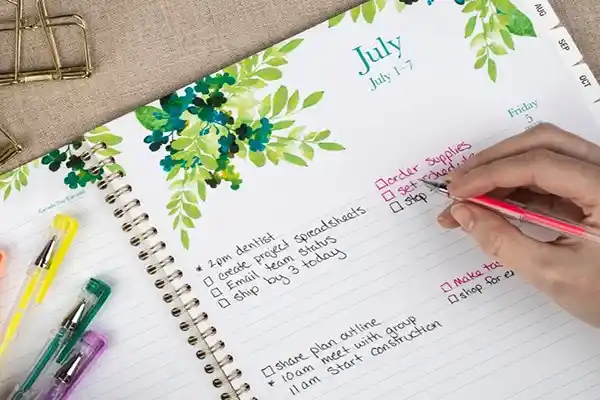 July
July 1-7
AUG
SEP
OCT
Friday
5
* 2pm dentist
□ create project spreadsheets
□ Email team status
□ ship by 3 today
□ order supplies
□ set
□ stop
□ Make
□ shop for
□ share plan outline
* 10am meet with group
11am start construction